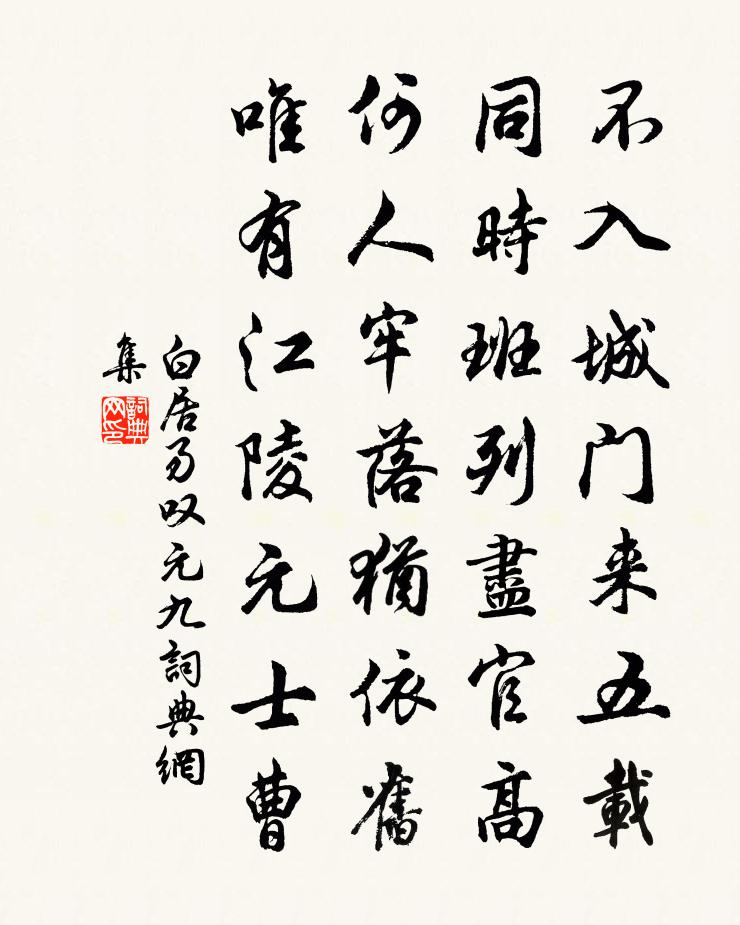 不入城门来五載
同時班列盡官高
何人牢落猶依舊
唯有江陵元士曹
白居易叹元九詞典網
集
詞典网印